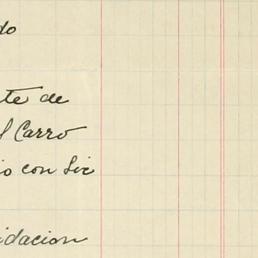 do
te de
l Carro
io con Lic
idacion